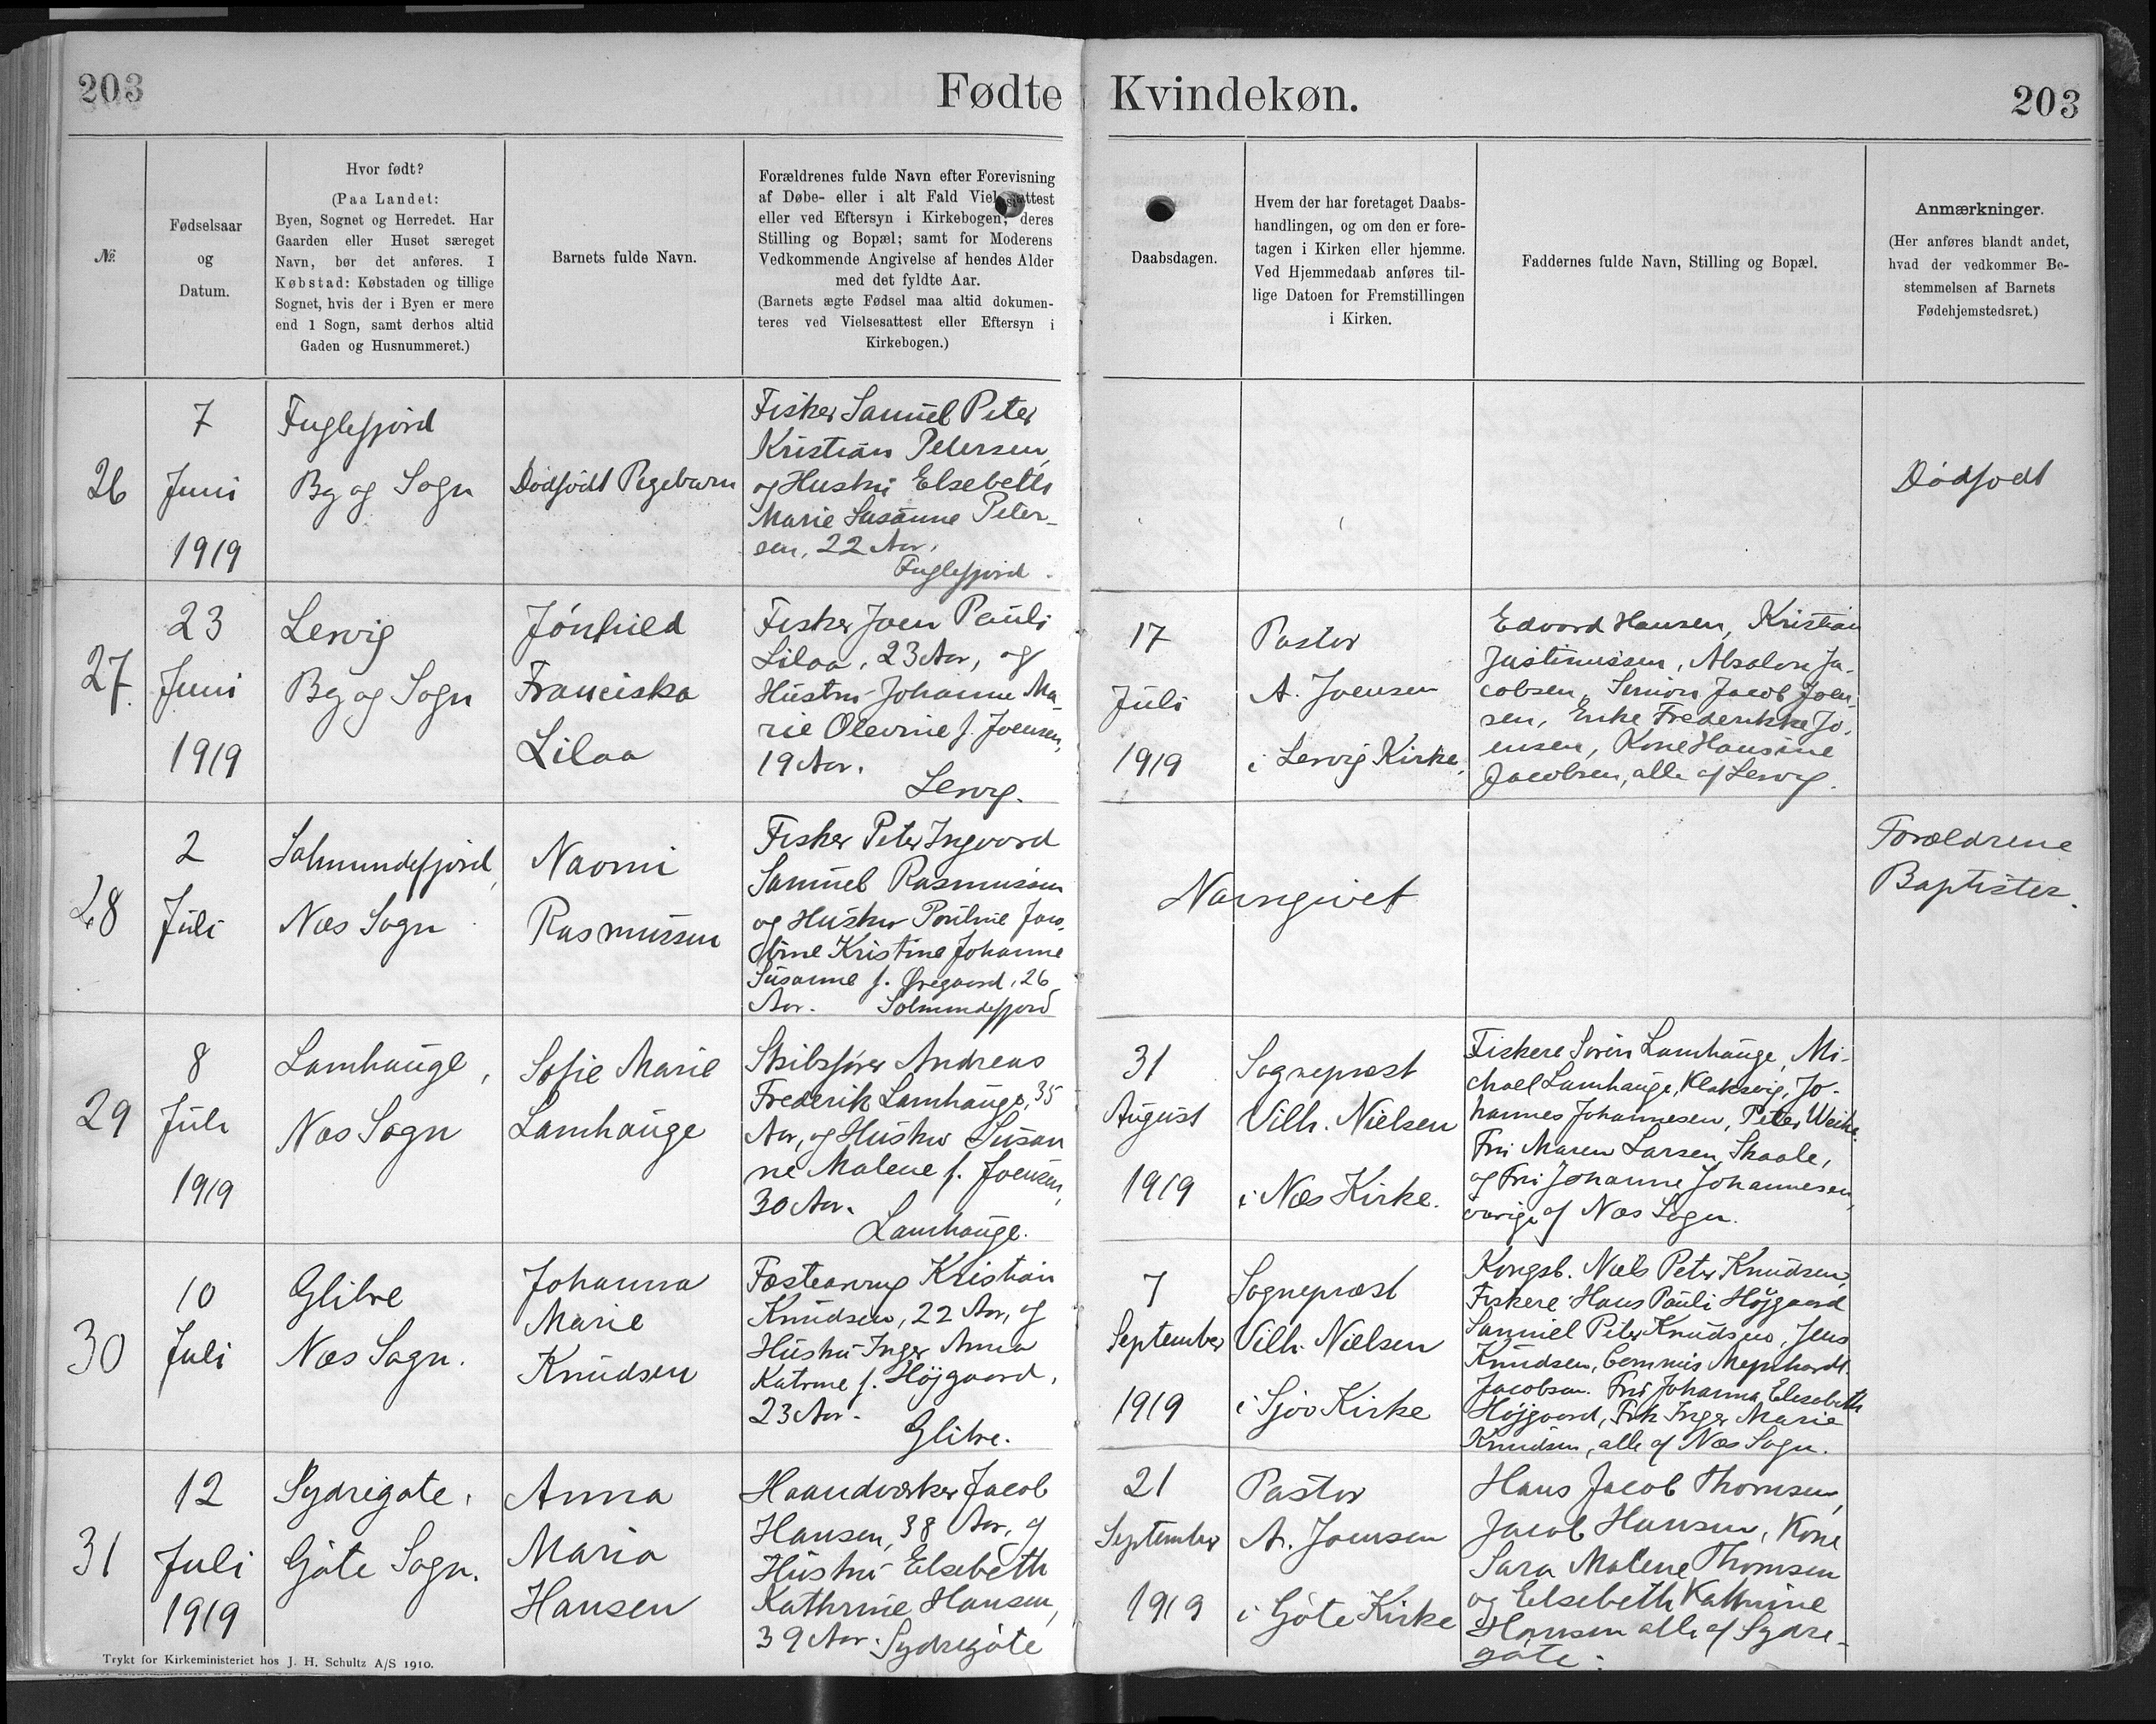 203
Fødte
Kvindekøn.
203
№
Fødselsaar
og
Datum.
Hvor født?
(Paa Landet:
Byen, Sognet og Herredet. Har
Gaarden eller Huset særeget
Navn, bør det anføres. I
Købstad: Købstaden og tillige
Sognet, hvis der i Byen er mere
end 1 Sogn, samt derhos altid
Gaden og Husnummeret.)
Barnets fulde Navn.
Forældrenes fulde Navn efter Forevisning
af Døbe- eller i alt Fald Vielsesattest
eller ved Eftersyn i Kirkebogen; deres
Stilling og Bopæl; samt for Moderens
Vedkommende Angivelse af hendes Alder
med det fyldte Aar.
(Barnets ægte Fødsel maa altid dokumen-
teres ved Vielsesattest eller Eftersyn i
Kirkebogen.)
Daabsdagen.
Hvem der har foretaget Daabs-
handlingen, og om den er fore-
tagen i Kirken eller hjemme.
Ved Hjemmedaab anføres til-
lige Datoen for Fremstillingen
i Kirken.
Faddernes fulde Navn, Stilling og Bopæl.
Anmærkninger.
(Her anføres blandt andet,
hvad der vedkommer Be-
stemmelsen af Barnets
Fødehjemstedsret.)
26
7
Juni
1919
Fuglefjord
By og Sogn
Dødfødt Pigebarn
Fisker Samuel Peter
Kristian Petersen,
og Hustru Elsebeth
Marie Susanne Peter-
sen, 22 Aar,
Fuglefjord.
Dødfødt
27.
23
Juni
1919
Lervig
By og Sogn
Jónhild
Franciska
Lilaa
Fisker Joen Pauli
Lilaa, 23 Aar, og
Hustru Johanne Ma-
rie Olevine f. Joensen,
19 Aar.
Lervig.
17
Juli
1919
Pastor
A. Joensen
i Lervig Kirke.
Edvard Hansen, Kristian
Justinussen, Absalon Ja-
cobsen, Simon Jacob Joen-
sen, Enke Frederikke Jo-
ensen, Kone Hansine
Jacobsen, alle af Lervig.
28
2
Juli
Salmundefjord,
Næs Sogn
Naomi
Rasmussen
Fisker Peter Ingvard
Samuel Rasmussen
og Hustru Pouline Jaco-
bine Kristine Johanne
Susanne f. Øregaard, 26
Aar. Solmundefjord
Navngivet
Forældrene
Baptister.
29
8
Juli
1919
Lamhauge,
Næs Sogn
Sofie Marie
Lamhauge
Skibsfører Andreas
Frederik Lamhauge, 35
Aar, og Hustru Susan
ne Malene f. Joensen,
30 Aar.
Lamhauge.
31
August
1919
Sognepræst
Vilh. Nielsen
i Næs Kirke.
Fiskere Sørin Lamhauge, Mi-
chael Lamhauge, Klaksvig, Jo-
hannes Johannesen, Peter Weihe.
Fru Maren Larsen, Skaale,
og Fru Johanne Johannesen,
øvrige af Næs Sogn.
30
10
Juli
Glibre
Næs Sogn.
Johanna
Marie
Knudsen
Fæstearving Kristian
Knudsen, 22 Aar, og
Hustru Inger Anna
Katrine f. Højgaard,
23 Aar.
Glibre.
7
September
1919
Sognepræst
Vilh. Nielsen
i Sjov Kirke
Kongsb. Niels Peter Knudsen,
Fiskere Hans Pauli Højgaard
Samuel Peter Knudsen, Jens
Knudsen, Commis Meynhardt
Jacobsen. Fru Johanna Elisabeth
Højgaard, Frk Inger Marie
Knudsen, alle af Næs Sogn.
31
12
Juli
1919
Sydrigøte,
Gøte Sogn.
Anna
Maria
Hansen
Haandværker Jacob
Hansen, 38 Aar, og
Hustru Elsebeth
Kathrine Hansen,
39 Aar. Sydrigøte
21
September
1919
Pastor
A. Joensen
i Gøte Kirke
Hans Jacob Thomsen,
Jacob Hansen, Kone
Sara Malene Thomsen
og Elsebeth Kathrine
Hansen alle af Sydre-
gøte.
Trykt for Kirkeministeriet hos J. H. Schultz A/S 1910.